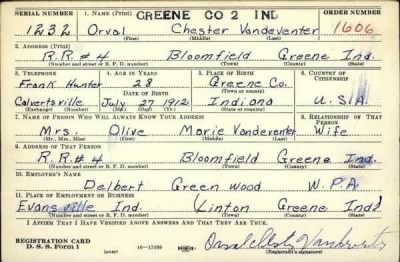 GREENE CO 2 IND
SERIAL NUMBER 1. NAME (Print) ORDER NUMBER
1232 Orval Chester Vandeventer 1606
(First) (Middle) (Last)
2. ADDRESS (Print)
R.R.#4 Bloomfield Greene Ind.
(Number and street or R. F. D. number) (Town) (County) (State)
3. TELEPHONE 4. AGE IN YEARS 5. PLACE OF BIRTH 6. COUNTRY OF CITIZENSHIP
Frank Hunter 28 Greene Co.
DATE OF BIRTH (Town or county)
Calvertsville July 27 1912 Indiana U.S.A.
(Exchange) (Number) (Mo.) (Day) (Yr.) (State or country)
7. NAME OF PERSON WHO WILL ALWAYS KNOW YOUR ADDRESS 8. RELATIONSHIP OF THAT PERSON
Mrs. Olive Marie Vandeventer Wife
(Mr., Mrs., Miss) (First) (Middle) (Last)
9. ADDRESS OF THAT PERSON
R.R.#4 Bloomfield Greene Ind.
(Number and street or R. F. D. number) (Town) (County) (State)
10. EMPLOYER'S NAME
Delbert Greenwood W.P.A.
11. PLACE OF EMPLOYMENT OR BUSINESS
Evansville Ind. (Linton Greene Ind)
(Number and street or R. F. D. number) (Town) (County) (State)
I AFFIRM THAT I HAVE VERIFIED ABOVE ANSWERS AND THAT THEY ARE TRUE.
REGISTRATION CARD
D. S. S. Form 1 16-17105 Orval Chester Vandeventer
(Registrant's signature)